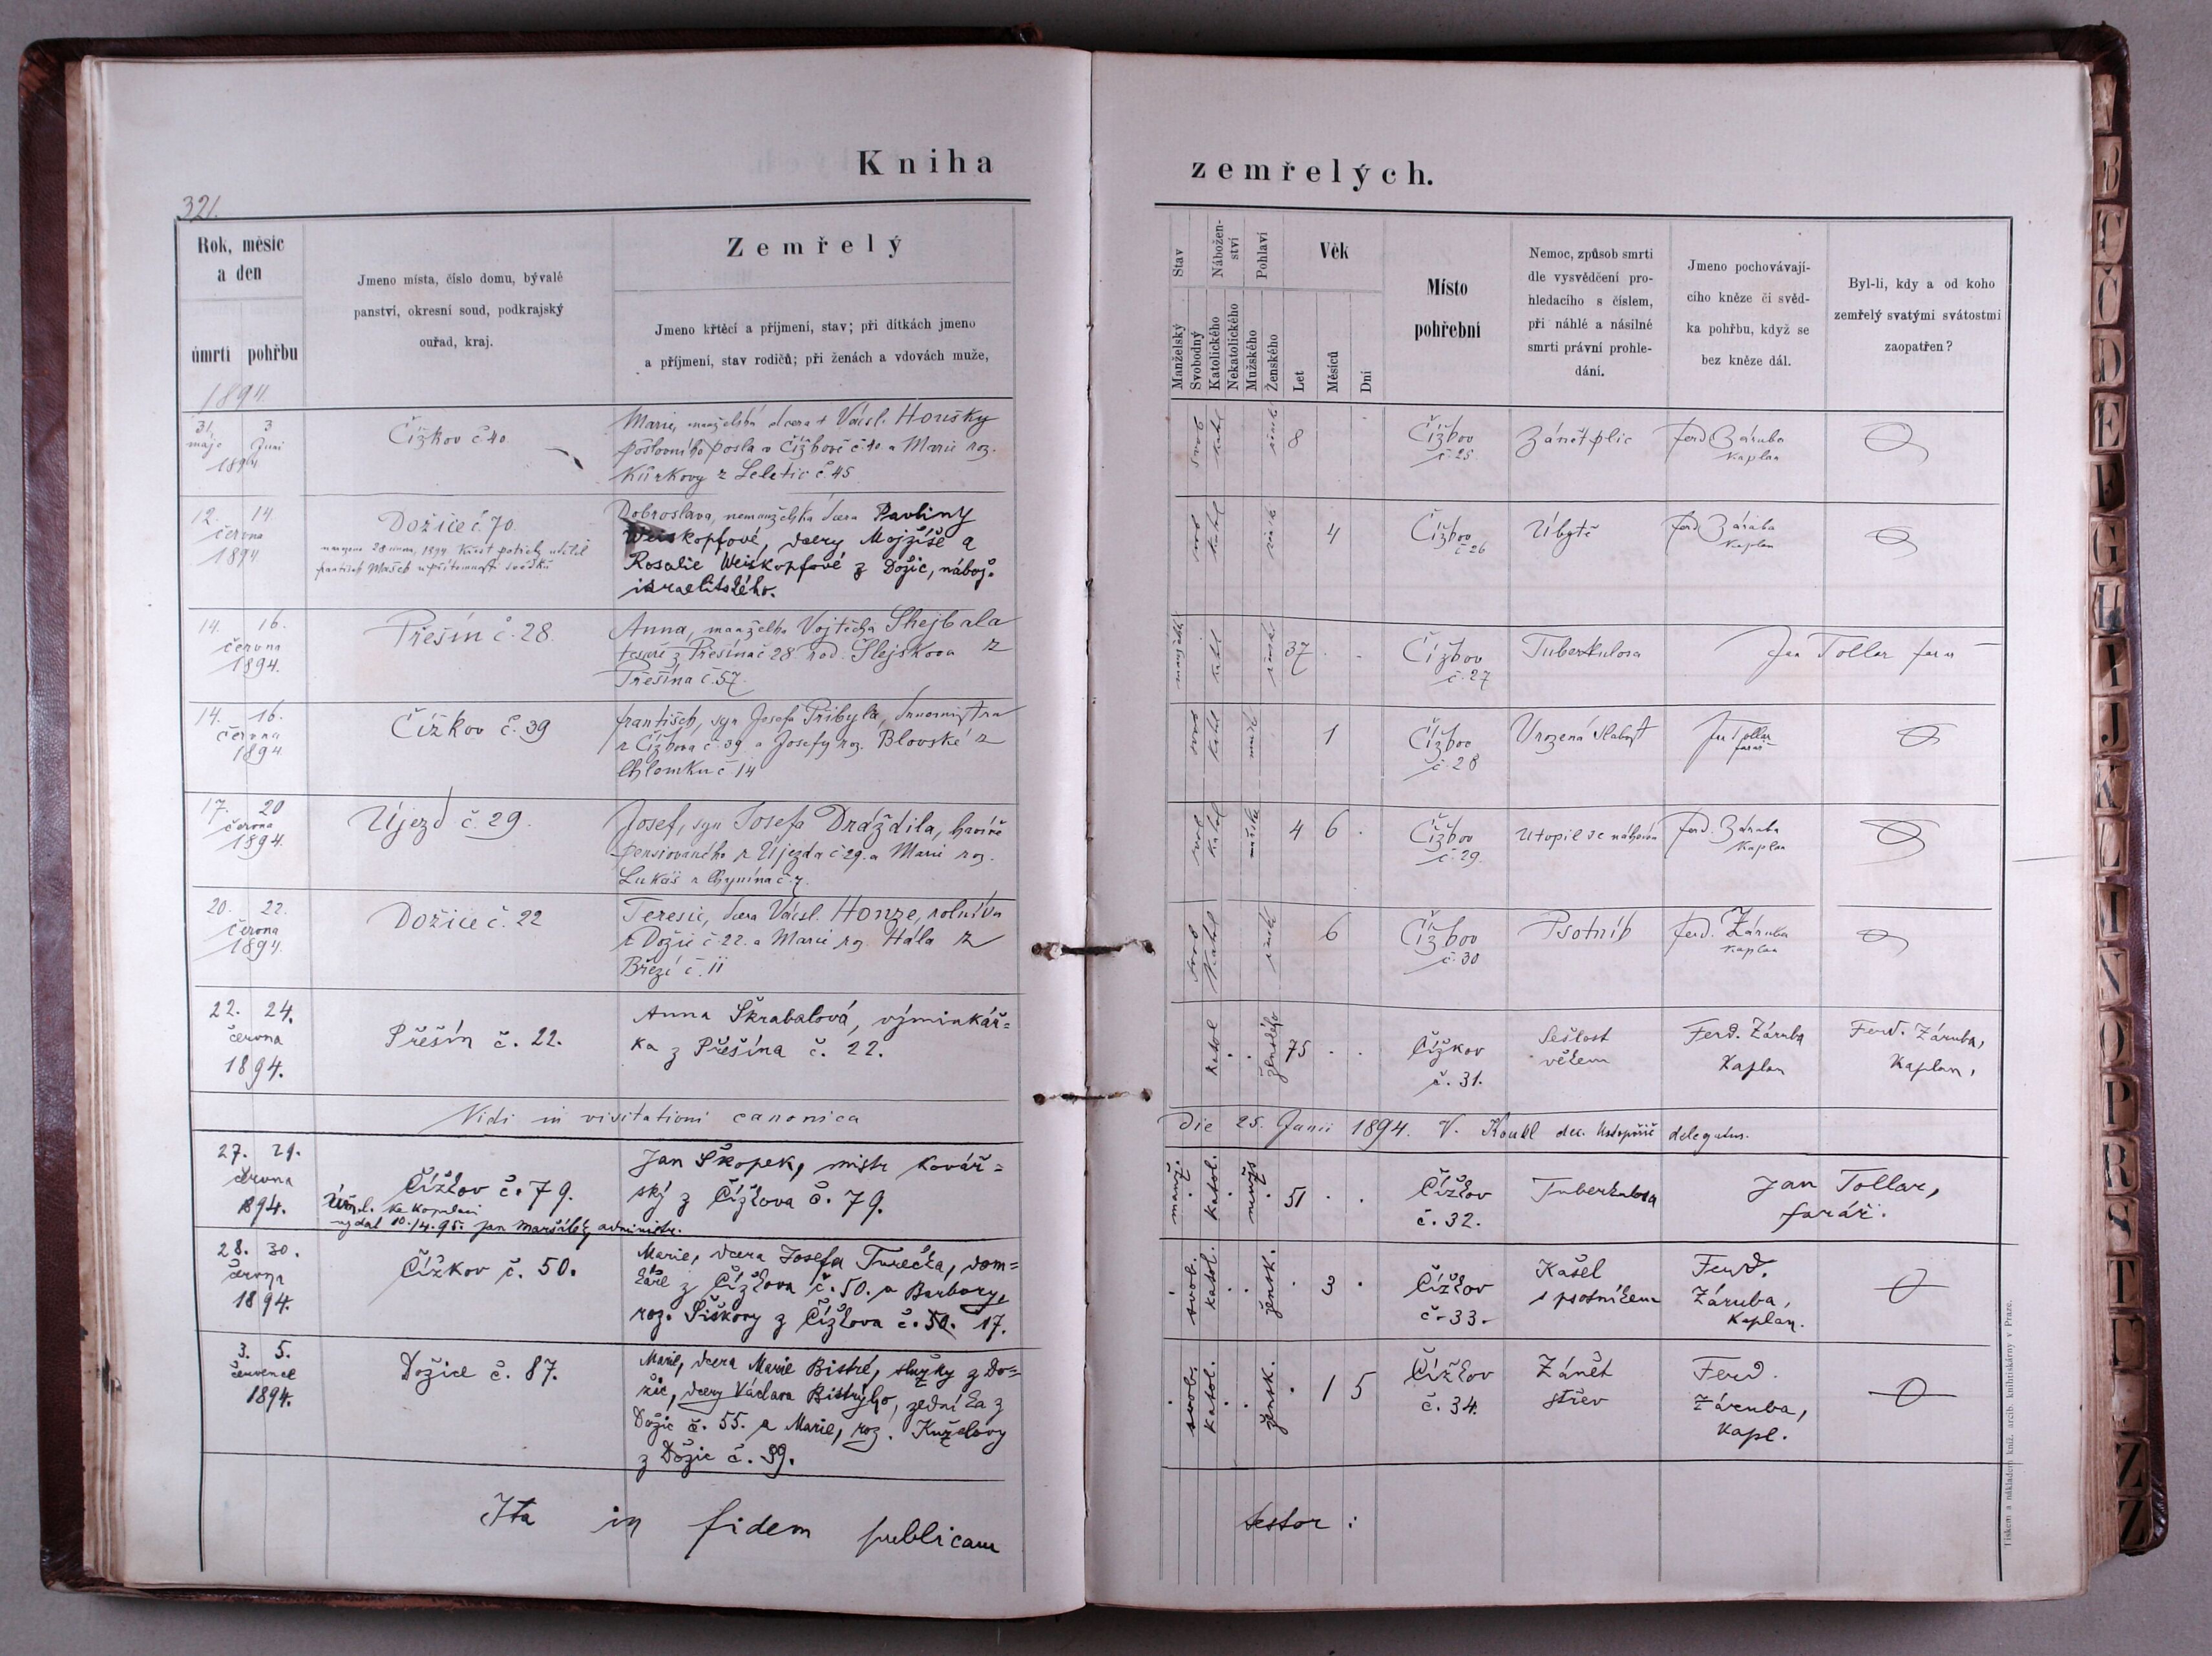 Kniha
zemřelých.
321.
Rok, měsíc
a den
úmrtí pohřbu
Jmeno místa, číslo domu, bývalé
panství, okresní soud, podkrajský
ouřad, kraj.
Zemřelý
Jmeno křtěcí a příjmení, stav; při dítkách jmeno
a příjmení, stav rodičů; při ženách a vdovách muže,
Stav
Manželský
Svobodný
Nábožen-
ství
Katolického
Nekatolického
Pohlaví
Mužského
Ženského
Věk
Let
Měsíců
Dní
Místo
pohřební
Nemoc, způsob smrti
dle vysvědčení pro-
hledacího s číslem,
při náhlé a násilné
smrti právní prohle-
dání.
Jmeno pochovávají-
cího kněze či svěd-
ka pohřbu, když se
bez kněze dál.
Byl-li, kdy a od koho
zemřelý svatými svátostmi
zaopatřen?
1894
31. 3
máje Juni
1894
Čížkov č 40
Marie, manželská dcera + Václ. Houšky
poštovního posla v Čížkově č. 40 a Marie roz.
Kůrkovy z Letetic č. 45
svob katol žensk 8
Čížkov
č. 25
Zánět plic
Ferd Záruba
Kaplan
12. 14.
června
1894
Dožice č. 70.
Dobroslava, nemanželská dcera Pavliny
Weiskopfové, dcery Mojžíše a
Rosalie Weiskopfové z Dožic, nábož.
israelitského.
svob katol žensk 4
Čížkov
č 26
Úbytě
Ferd. Záruba
Kaplan
14. 16.
června
1894.
Přešín č. 28.
Anna, manželka Vojtěcha Shejbala
tesaře z Přešína č 28 rod. Šlejskova z
Přešína č. 57.
manžels katol žensk 37 . .
Čížkov
č. 27
Tuberkulosa
Jan Tollar farář
14. 16.
června
1894
Čížkov č. 39
František, syn Josefa Přibyla,
z Čížkova č. 39 a Josefy roz. Blovské z
Chlomku č 14
svob katol mužsk 1
Čížkov
č. 28
Vrozená slabost
Jan Tollar
farář
17. 20
června
1894.
Újezd č. 29.
Josef, syn Josefa Dráždila, havíře
pensiovaného z Újezda č 29. a Marie roz.
Lukáš z Chynína č. 7.
svob katol mužsk 4 6 .
Čížkov
č. 29.
Utopil se náhodou
Ferd. Záruba
Kaplan
20. 22.
června
1894.
Dožice č. 22
Teresie, dcera Václ. Honze, rolníka
z Dožic č. 22. a Marie roz Hála z
Březí č. 11
svob katol žensk 6
Čížkov
č. 30
Psotník
Ferd. Záruba
Kaplan
22. 24.
června
1894.
Přešín č. 22.
Anna Škrabalová, výminkář=
ka z Přešína č. 22.
katol . ženského 75 . .
Čížkov
č. 31.
Sešlost
věkem
Ferd. Záruba
Kaplan
Ferd. Záruba,
Kaplan.
Vidi in visitationi canonica
die 25. Junii 1894. V. Koubl dec. delegatus.
27. 29.
června
1894.
Čížkov č. 79.
ke kopulaci
vydal 10./4. 95. Jan Maršálek, administr.
Jan Škopek, mistr kovář=
ský z Čížkova č. 79.
manž. katol. mužs 51 . .
Čížkov
č. 32.
Tuberkulosa
Jan Tollar,
farář.
28. 30.
června
1894.
Čížkov č. 50.
Marie, dcera Josefa Turečka, dom=
káře z Čížkova č. 50. a Barbory,
roz. Piškory z Čížkova č. 50. 17.
svob. katol. žensk. . 3 .
Čížkov
č. 33.
Kašel
s psotníkem
Ferd.
Záruba,
Kaplan.
3. 5.
července
1894.
Dožice č. 87.
Marie, dcera Marie Bistré, služky z Do=
žic, dcery Václava Bistrýho, zedníka z
Dožic č. 55. a Marie, roz. Kuželovy
z Dožic č. 99.
svob. katol. žensk. . 1 5
Čížkov
č. 34.
Zánět
střev
Ferd.
Záruba,
Kapl.
Ita in fidem publicam
testor :
Tiskem a nákladem kníž. arcib. knihtiskárny v Praze.
B
C
Č
D
E
F
G
H
I
J
K
L
M
N
O
P
R
S
T
U
Z
Ž